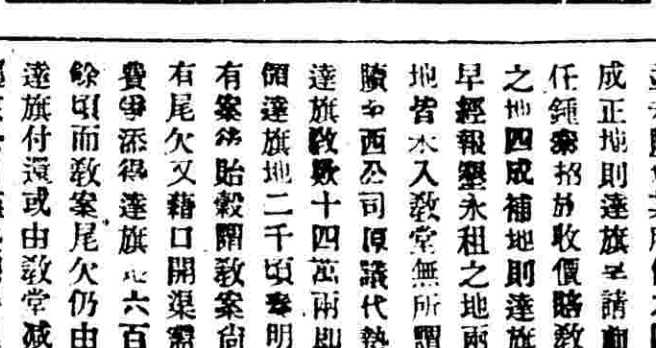 成正地則達旗呈請
任鍾招放收價賠教
之地四成補地則達旗
早經報墾永租之地兩
地皆未入教堂無所謂
贖東西公司原議代墊
達旗教款十四萬兩即
領達旗地二千頃奏明
有案後貽穀謂教案尚
有尾欠又藉口開渠需
費爭添得達旗地六百
餘頃而教案尾欠仍由
達旗付還或由教堂減